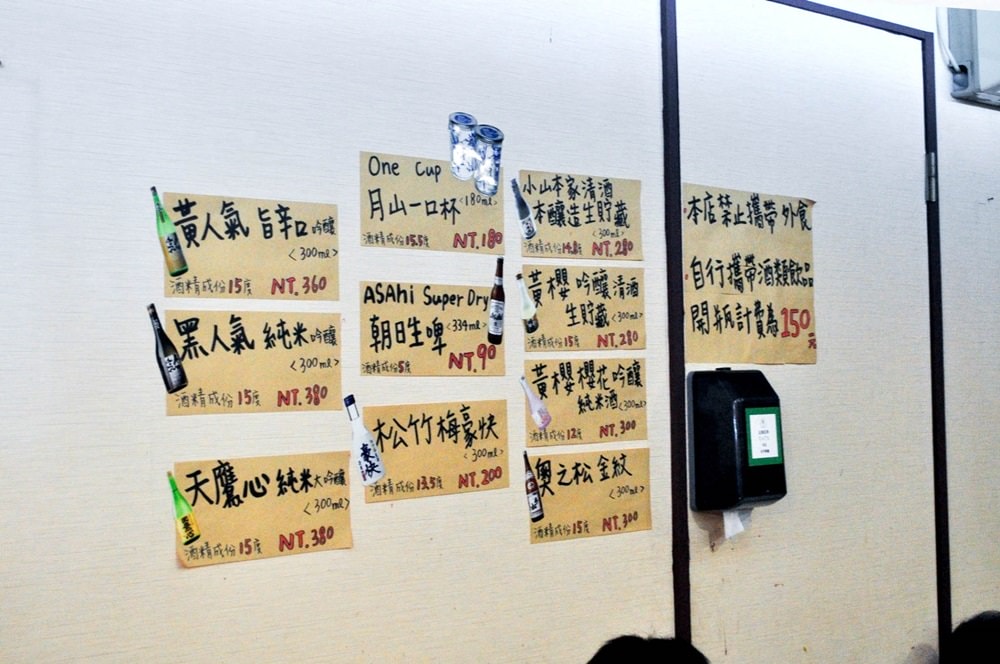 黃人氣 旨辛口 吟釀
<300ml>
酒精成份15度 NT.360
黑人氣 純米吟釀
<300ml>
酒精成份15度 NT.380
天鷹心 純米大吟釀
<300ml>
酒精成份15度 NT.380
One Cup
月山一口杯 <180ml>
酒精成份15.5度 NT.180
ASAhi Super Dry
朝日生啤 <334ml>
酒精成份5度 NT.90
松竹梅豪快
<300ml>
酒精成份13.5度 NT.200
小山本家清酒
本釀造生貯藏
<300ml>
酒精成份14.8度 NT.280
黃櫻 吟釀清酒
生貯藏 <300ml>
酒精成份15度 NT.280
黃櫻櫻花吟釀
純米酒<300ml>
酒精成份12度 NT.300
奧之松 金紋
<300ml>
酒精成份15度 NT.300
·本店禁止攜帶外食
·自行攜帶酒類飲品
開瓶計費為150元